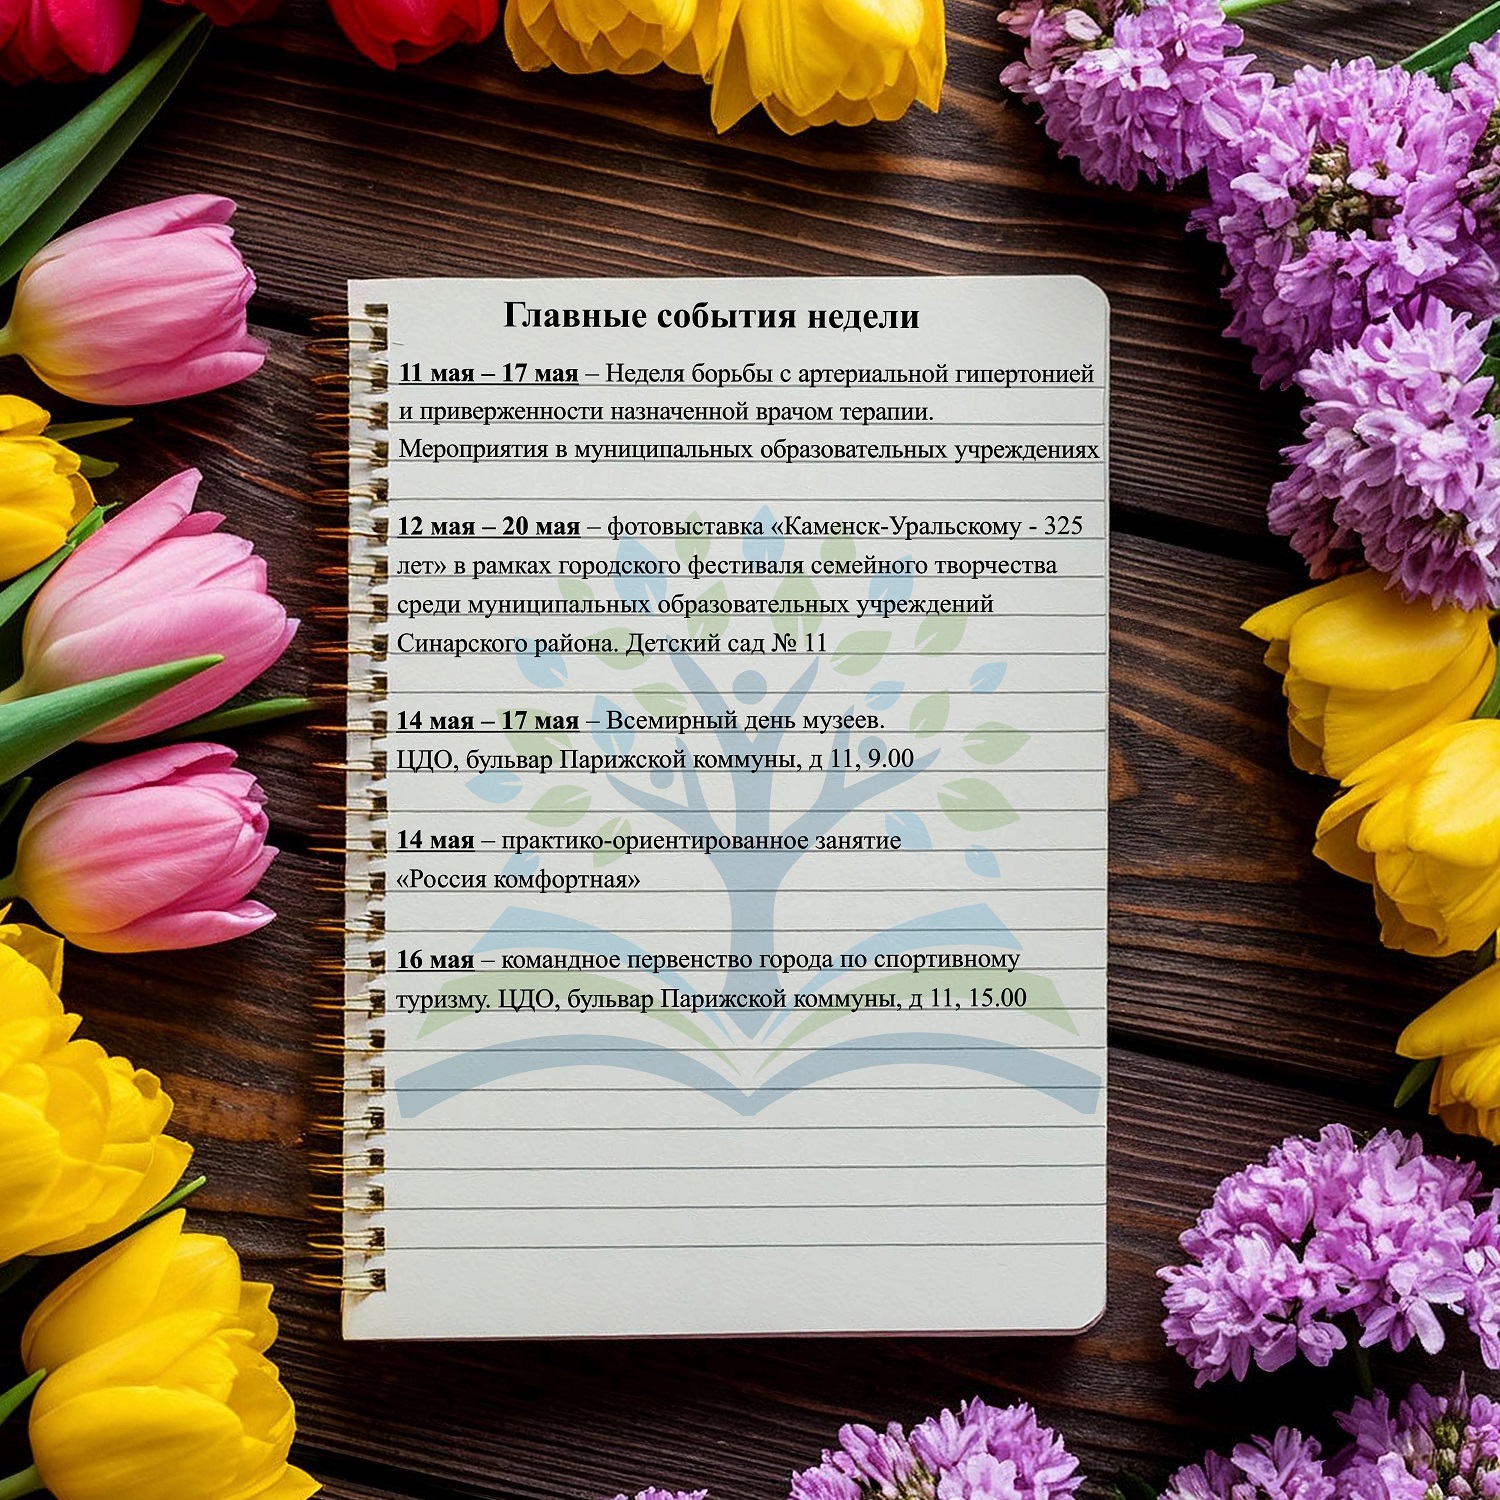 Главные события недели
11 мая – 17 мая – Неделя борьбы с артериальной гипертонией
и приверженности назначенной врачом терапии.
Мероприятия в муниципальных образовательных учреждениях
12 мая – 20 мая – фотовыставка «Каменск-Уральскому - 325
лет» в рамках городского фестиваля семейного творчества
среди муниципальных образовательных учреждений
Синарского района. Детский сад № 11
14 мая – 17 мая – Всемирный день музеев.
ЦДО, бульвар Парижской коммуны, д 11, 9.00
14 мая – практико-ориентированное занятие
«Россия комфортная»
16 мая – командное первенство города по спортивному
туризму. ЦДО, бульвар Парижской коммуны, д 11, 15.00